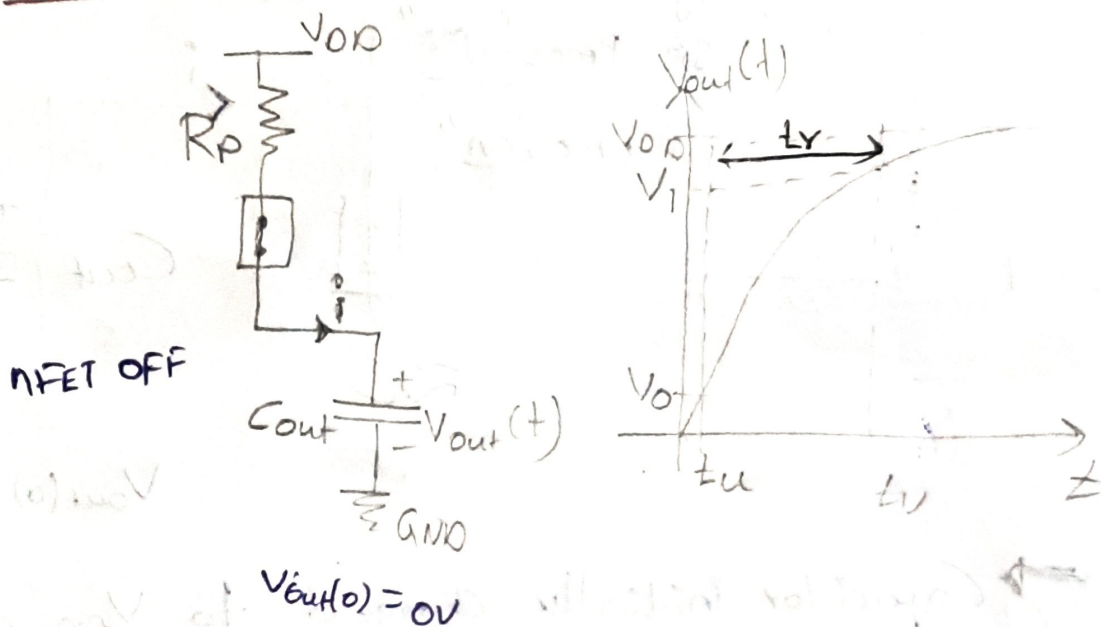 VDD
Rp
i
nFET OFF
Cout
+
Vout(t)
-
GND
Vout(0) = 0V
Vout(t)
VDD
tr
V1
V0
tu
tv
t